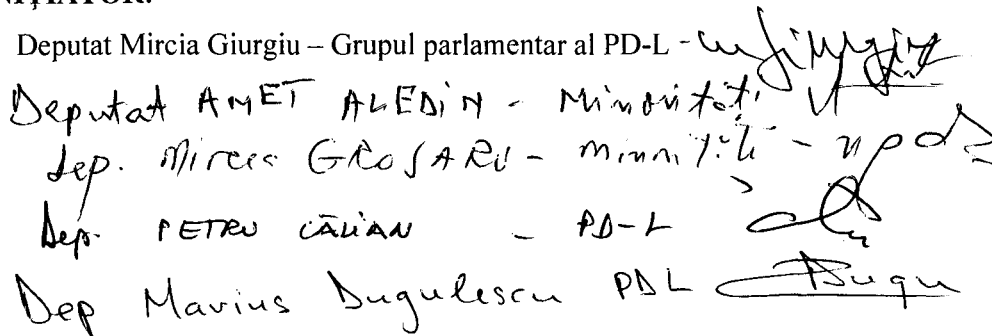 INIȚIATOR:
Deputat Mircia Giurgiu – Grupul parlamentar al PD-L -
Deputat AMET ALEDIN - Minorități
dep. Mircea GROSARU - minorități -
Dep. PETRU CĂLIAN - PD-L
Dep Marius Dugulescu PDL Dugu